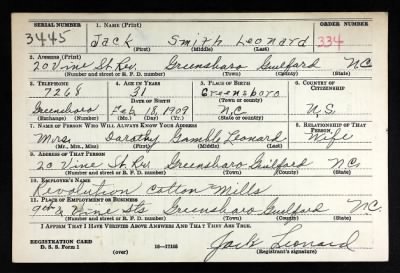 SERIAL NUMBER 1. NAME (Print) ORDER NUMBER
3445 Jack Smith Leonard 334
(First) (Middle) (Last)
2. ADDRESS (Print)
20 Vine St. Rev. Greensboro Guilford N.C.
(Number and street or R. F. D. number) (Town) (County) (State)
3. TELEPHONE 4. AGE IN YEARS 5. PLACE OF BIRTH 6. COUNTRY OF CITIZENSHIP
7268 31 Greensboro
DATE OF BIRTH (Town or county)
Greensboro Feb 18 1909 N.C. U.S.
(Exchange) (Number) (Mo.) (Day) (Yr.) (State or country)
7. NAME OF PERSON WHO WILL ALWAYS KNOW YOUR ADDRESS 8. RELATIONSHIP OF THAT PERSON
Mrs. Dorothy Gamble Leonard Wife
(Mr., Mrs., Miss) (First) (Middle) (Last)
9. ADDRESS OF THAT PERSON
20 Vine St Rev Greensboro Guilford N.C.
(Number and street or R. F. D. number) (Town) (County) (State)
10. EMPLOYER'S NAME
Revolution Cotton Mills
11. PLACE OF EMPLOYMENT OR BUSINESS
9th & Vine Sts Greensboro Guilford N.C.
(Number and street or R. F. D. number) (Town) (County) (State)
I AFFIRM THAT I HAVE VERIFIED ABOVE ANSWERS AND THAT THEY ARE TRUE.
REGISTRATION CARD
D. S. S. Form 1 (over) 16—17105 Jack Leonard
(Registrant's signature)